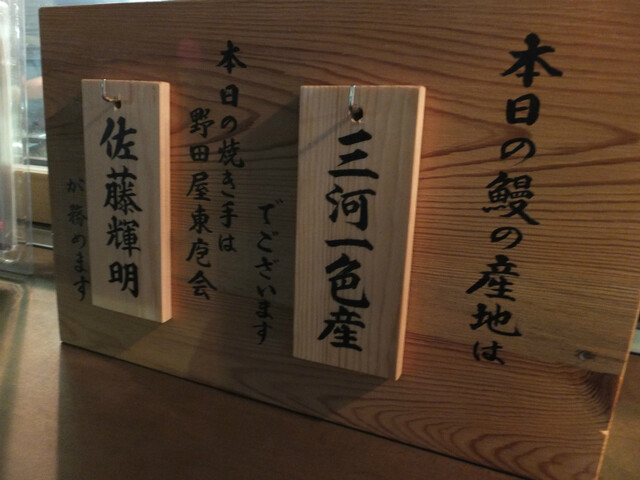 本日の鰻の産地は
三河一色産
でございます
本日の焼き手は
野田屋東庖会
佐藤輝明
が務めます